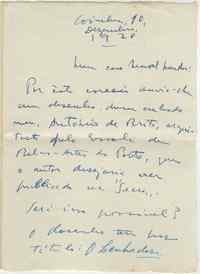 Coimbra, 10,
Dezembro,
1928
Meu caro
Por este correio envio-lhe
um desenho, dum cunhado
meu, António de Brito, arqui-
teto pela Escola de
Belas-Artes do Porto, que
o autor desejaria ver
publicado na
Será isso possível?
O desenho tem por
título: O Sonhador